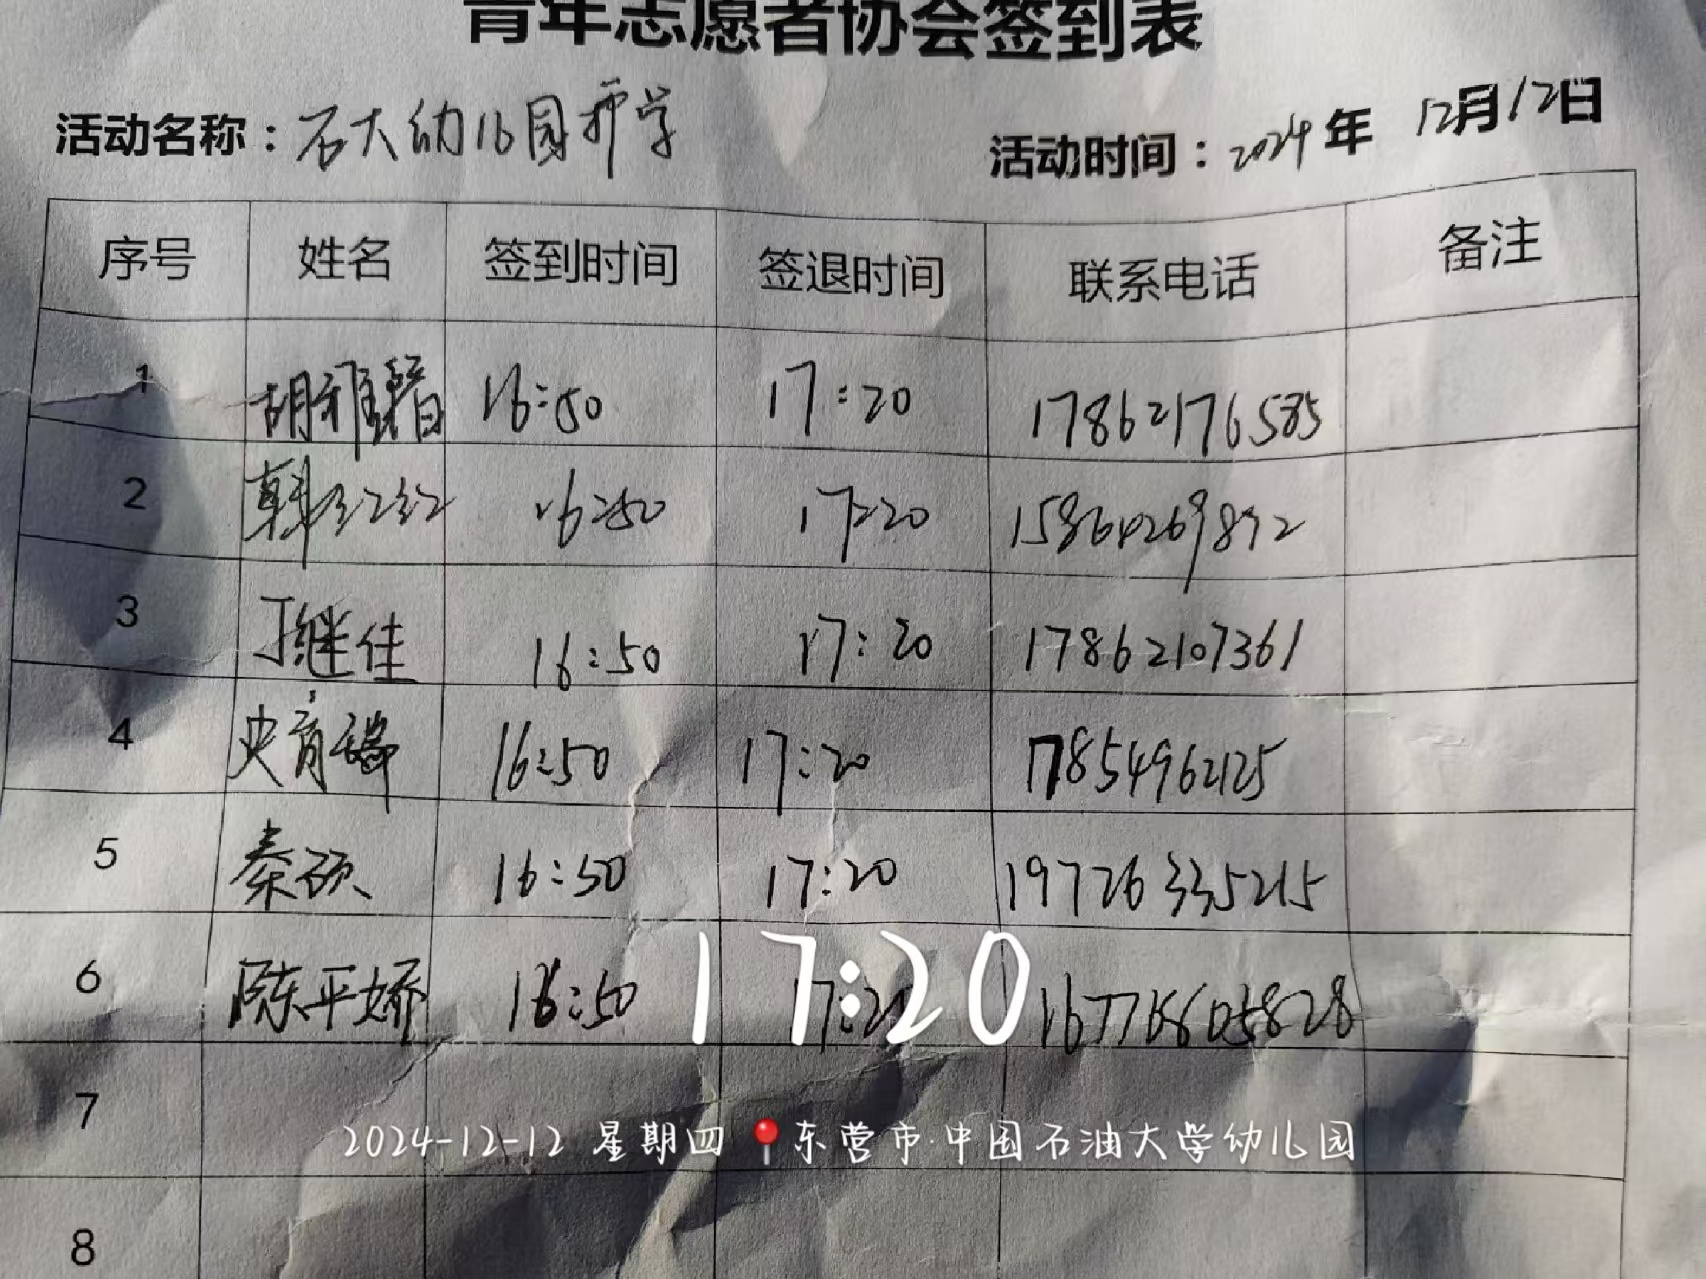 青年志愿者协会签到表
活动名称：石大幼儿园护学 活动时间：2024年12月12日
序号 姓名 签到时间 签退时间 联系电话 备注
1 胡雅馨 16:50 17:20 17862176585
2 韩红红 16:50 17:20 15864269892
3 丁继佳 16:50 17:20 17862107361
4 史育瑞 16:50 17:20 17854962125
5 秦硕 16:50 17:20 19726335215
6 陈平娇 16:50 17:20
17:20
7
2024-12-12 星期四 东营市·中国石油大学幼儿园
8